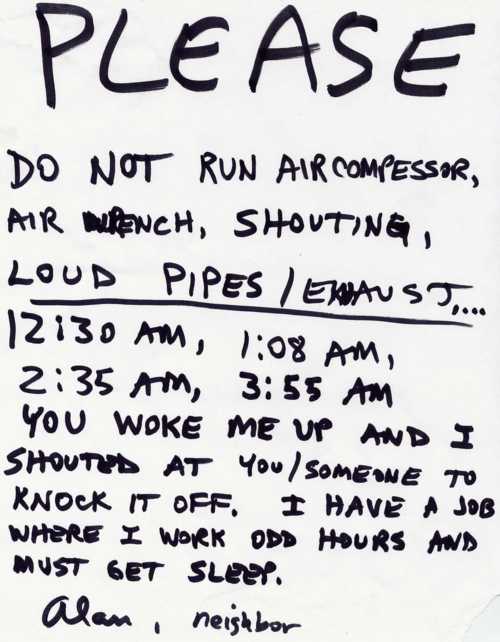 PLEASE
DO NOT RUN AIR COMPESSOR,
AIR WRENCH, SHOUTING,
LOUD PIPES / EXHAUST,...
12:30 AM, 1:08 AM,
2:35 AM, 3:55 AM
YOU WOKE ME UP AND I
SHOUTED AT YOU/SOMEONE TO
KNOCK IT OFF. I HAVE A JOB
WHERE I WORK ODD HOURS AND
MUST GET SLEEP.
Alan, neighbor